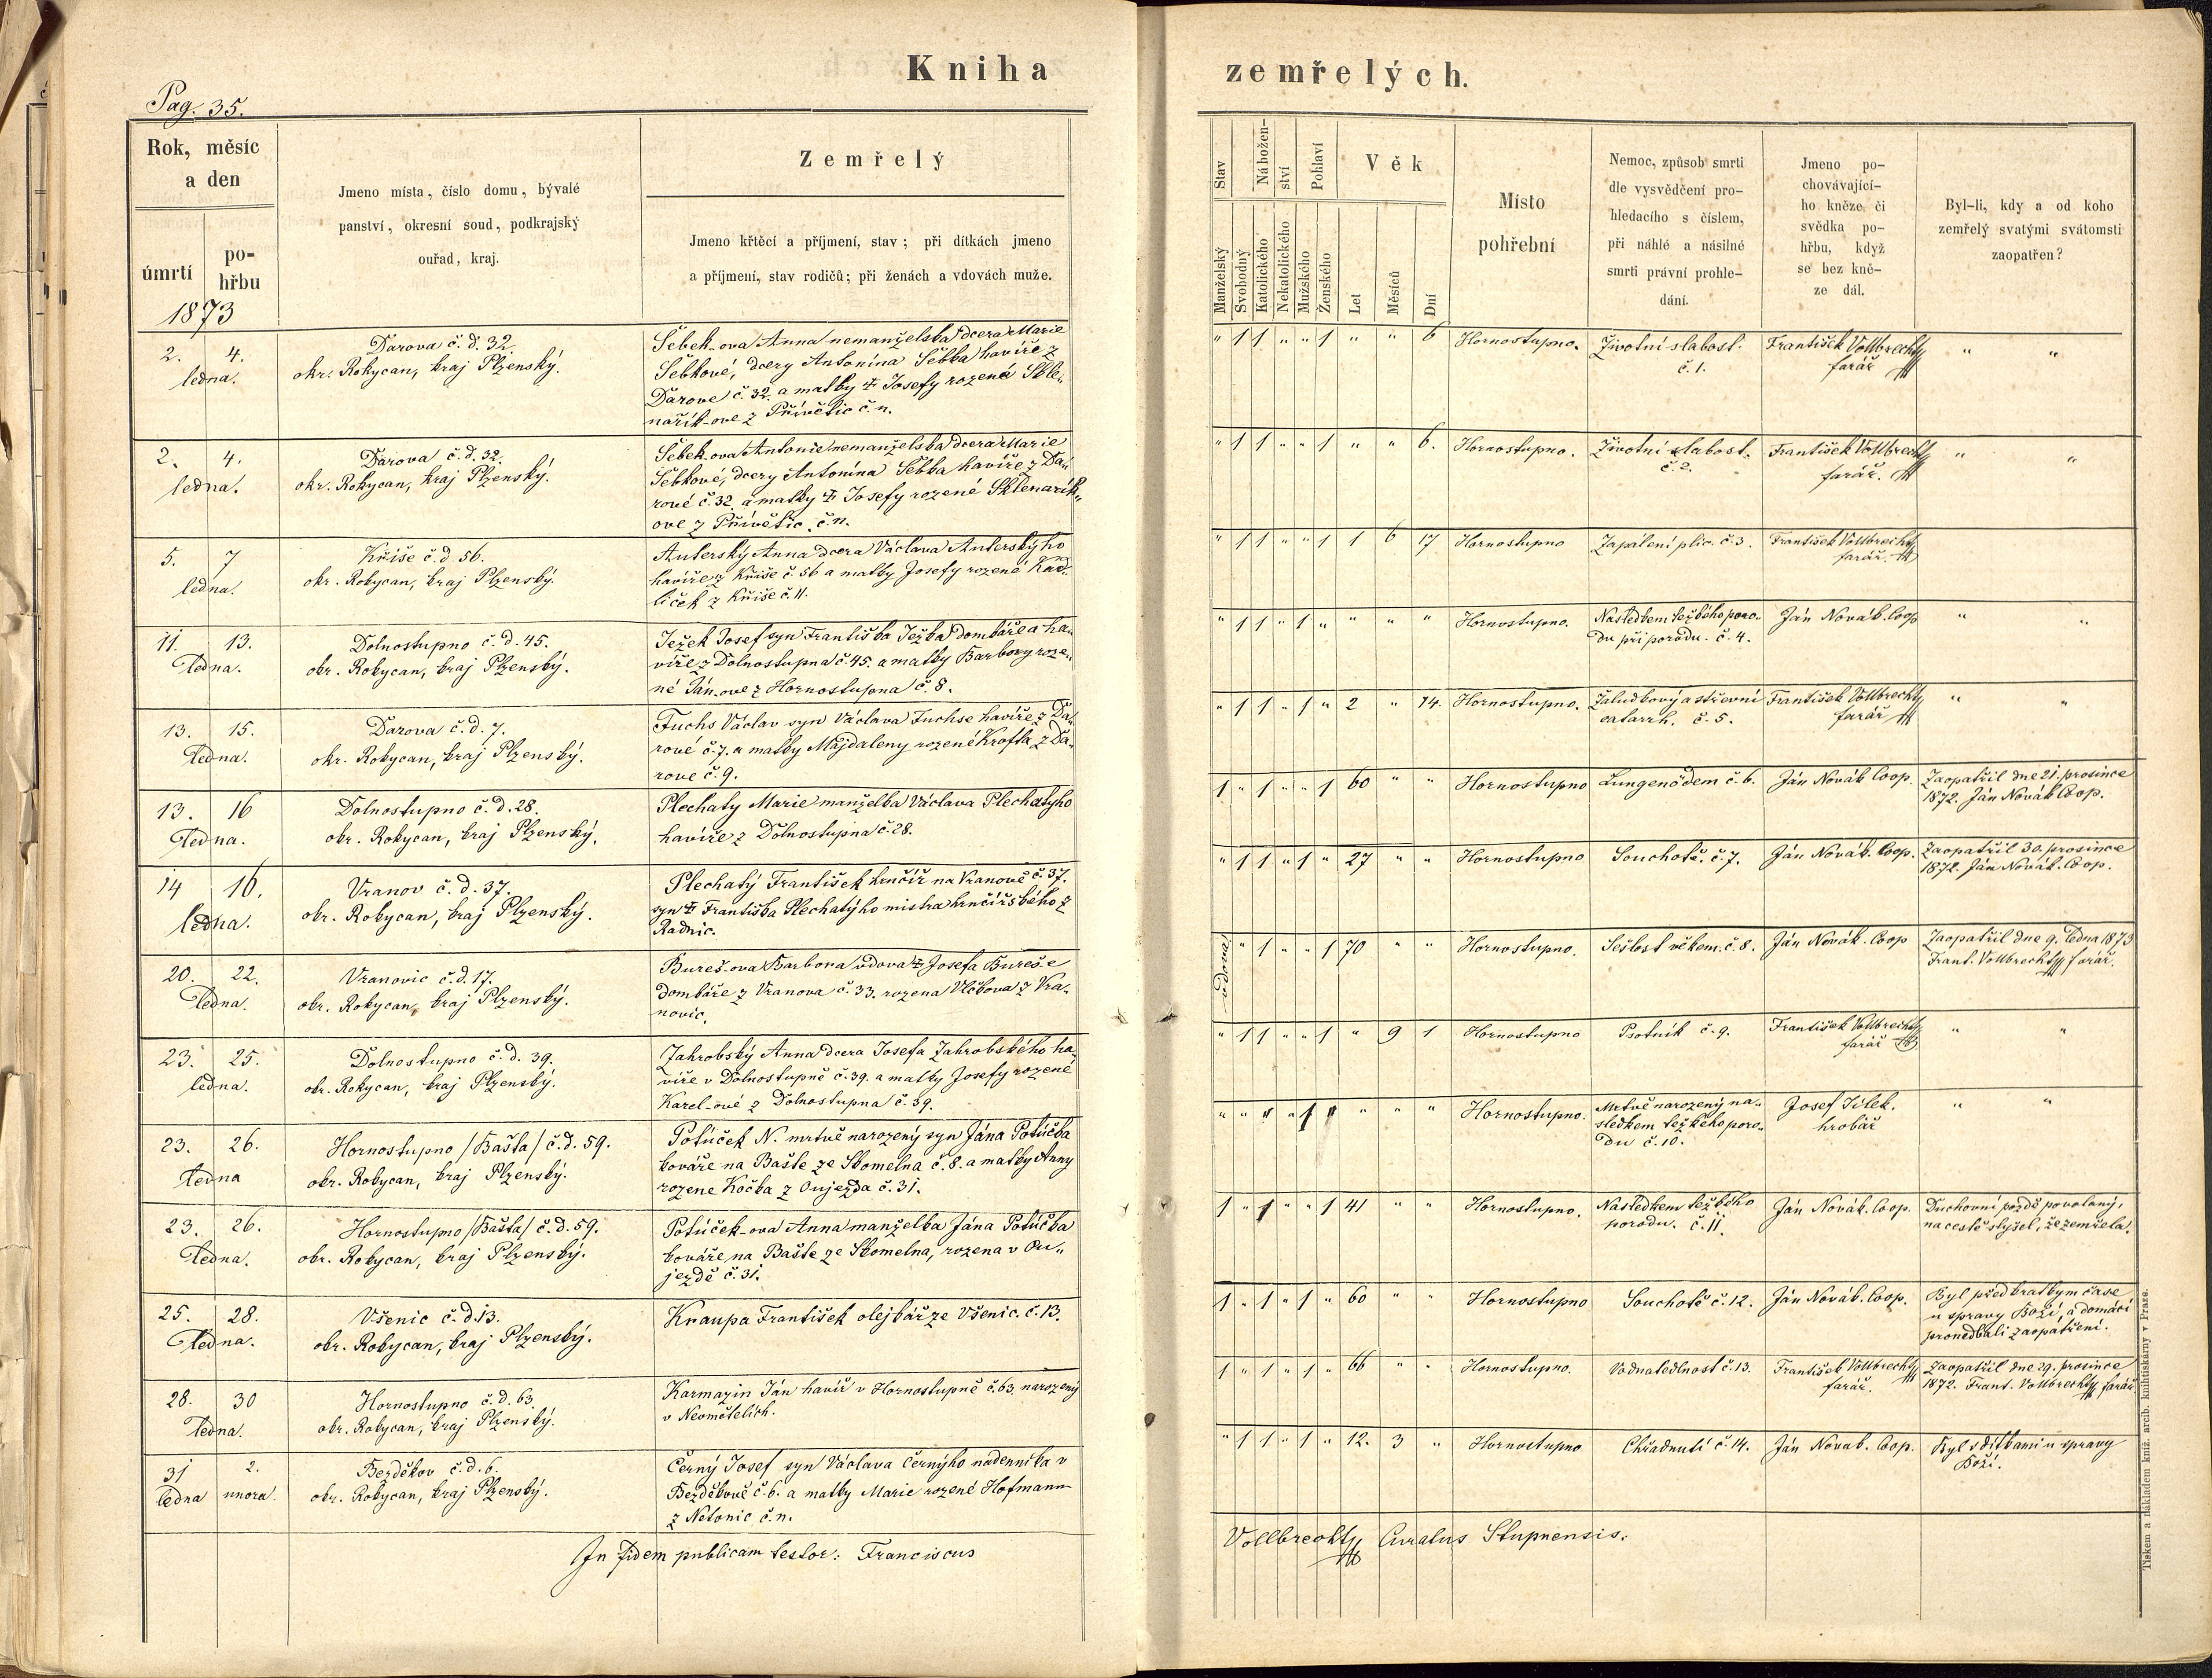 Kniha zemřelých.
Pag. 35.
Rok, měsíc
a den
úmrtí
po-
hřbu
1873
Jmeno místa, číslo domu, bývalé
panství, okresní soud, podkrajský
ouřad, kraj.
Zemřelý
Jmeno křtěcí a příjmení, stav; při dítkách jmeno
a příjmení, stav rodičů; při ženách a vdovách muže.
Stav
Manželský
Svobodný
Nábožen-
ství
Katolického
Nekatolického
Pohlaví
Mužského
Ženského
Věk
Let
Měsíců
Dní
Místo
pohřební
Nemoc, způsob smrti
dle vysvědčení pro-
hledacího s číslem,
při náhlé a násilné
smrti právní prohle-
dání.
Jmeno po-
chovávající-
ho kněze či
svědka po-
hřbu, když
se bez kně-
ze dál.
Byl-li, kdy a od koho
zemřelý svatými svátostmi
zaopatřen?
2. 4.
ledna.
Darova č. d. 32.
okr. Rokycan, kraj Plzenský.
Šebek-ova Anna nemanželska dcera Marie
Šebkové, dcery Antonína Šebka havíře z
Darove č. 32. a matky † Josefy rozené Skle„
nařík-ove z Přívětic č. n.
" 1 1 " " 1 " " 6
Hornostupno.
Životní slabost.
č. 1.
František Vollbrecht
farář
" "
2. 4.
ledna.
Darova č. d. 32.
okr. Rokycan, kraj Plzenský.
Šebek-ova Antonie nemanželska dcera Marie
Šebkové, dcery Antonína Šebka havíře z Da„
rové č. 32. a matky † Josefy rozené Sklenarík„
ove z Přívětic č. n.
" 1 1 " " 1 " " 6.
Hornostupno.
Životní slabost.
č. 2.
František Vollbrecht
farář.
" "
5. 7
ledna.
Kříše č. d. 56.
okr. Rokycan, kraj Plzenský.
Auterský Anna dcera Václava Auterskýho
havíře z Kříše č. 56 a matky Josefy rozené Kad„
liček z Kříše č. 11.
" 1 1 " " 1 1 6 17
Hornostupno
Zapálení plic. č. 3.
František Vollbrecht
farář.
11. 13.
ledna.
Dolnostupno č. d. 45.
okr. Rokycan, kraj Plzenský.
Ježek Josef syn Františka Ježka domkáře a ha„
víře z Dolnostupna č. 45. a matky Barbory roze„
né Ján-ove z Hornostupna č. 8.
" 1 1 " 1 " " " "
Hornostupno.
Následkem težkého poro„
du při porodu. č. 4.
Ján Novák. Coop
" "
13. 15.
ledna.
Darova č. d. 7.
okr. Rokycan, kraj Plzenský.
Fuchs Václav syn Václava Fuchse havíře z Da„
rové č. 7. a matky Majdaleny rozené Krofta z Da„
rove č. 9.
" 1 1 " 1 " 2 " 14.
Hornostupno.
Žaludkový a střevní
catarrh. č. 5.
František Vollbrecht
farář
" "
13. 16
ledna.
Dolnostupno č. d. 28.
okr. Rokycan, kraj Plzenský.
Plechaty Marie manželka Václava Plechatyho
havíře z Dolnostupna č. 28.
1 " 1 " " 1 60 " "
Hornostupno
Lungenödem č. 6.
Ján Novák Coop.
Zaopatřil dne 21. prosince
1872. Ján Novák Coop.
14 16.
ledna.
Vranov č. d. 37.
okr. Rokycan, kraj Plzenský.
Plechatý František hrnčíř na Vranově č. 37.
syn † Františka Plechatýho mistra hrnčířského z
Radnic.
" 1 1 " 1 " 27 " "
Hornostupno
Souchotě. č. 7.
Ján Novák. Coop.
Zaopatřil 30. prosince
1872. Ján Novák. Coop.
20. 22.
ledna.
Vranovic č. d. 17.
okr. Rokycan, kraj Plzenský.
Bureš-ova Barbora vdova † Josefa Bureše
domkáře z Vranova č. 33. rozena Vlčkova z Vra„
novic.
vdova " 1 " " 1 70 " "
Hornostupno.
Sešlost věkem. č. 8.
Ján Novák. Coop
Zaopatřil dne 9. ledna 1873
Frant. Vollbrecht farář.
23. 25.
ledna.
Dolnostupno č. d. 39.
okr. Rokycan, kraj Plzenský.
Zahrobský Anna dcera Josefa Zahrobského ha„
víře v Dolnostupně č. 39. a matky Josefy rozené
Karel-ové z Dolnostupna č. 39.
" 1 1 " " 1 " 9 1
Hornostupno
Psotník č. 9.
František Vollbrecht
farář
" "
23. 26.
ledna
Hornostupno /Bašta/ č. d. 59.
okr. Rokycan, kraj Plzenský.
Potůček N. mrtvě narozený syn Jána Potůčka
kováře na Bašte ze Skomelna č. 8. a matky Anny
rozene Kočka z Oujezda č. 31.
Hornostupno.
Mrtvě narozený na„
sledkem težkého poro„
du č. 10.
Josef Jílek.
hrobař
" "
23. 26.
ledna.
Hornostupno /Bašta/ č. d. 59.
okr. Rokycan, kraj Plzenský.
Potůček-ova Anna manželka Jána Potůčka
kováře na Bašte ze Skomelna, rozena v Ou„
jezdě č. 31.
1 " 1 " " 1 41 " "
Hornostupno.
Následkem težkého
porodu. č. 11.
Ján Novák. Coop.
Duchovní pozdě povolaný,
na cestě slyšel, že zemřela.
25. 28.
ledna.
Všenic č. d. 13.
okr. Rokycan, kraj Plzenský.
Knaupa František olejkář ze Všenic. č. 13.
1 " 1 " 1 " 60 " "
Hornostupno
Souchotě č. 12.
Ján Novák. Coop.
Byl před kratkym čase
u spravy Boží, a domácí
pronedbali zaopatření.
28. 30
ledna.
Hornostupno č. d. 63.
okr. Rokycan, kraj Plzenský.
Karmazin Ján havíř v Hornostupně č. 63. narozený
v Neomětelich.
1 " 1 " 1 " 66 " "
Hornostupno.
Vodnatedlnost č. 13.
František Vollbrecht
farář.
Zaopatřil dne 29. prosince
1872. Frant. Vollbrecht farář.
31 2.
ledna unora.
Bezděkov č. d. 6.
okr. Rokycan, kraj Plzenský.
Černý Josef syn Václava Černýho nadenníka v
Bezděkově č. 6. a matky Marie rozené Hofmann
z Netonic č. n.
" 1 1 " 1 " 12. 3 "
Hornostupno
Chřadnutí č. 14.
Ján Novak. Coop.
Byl s dítkami u spravy
Boží.
In fidem publicam testor: Franciscus
Vollbrecht Curatus Stupnensis.
Tiskem a nákladem kníž. arcib. knihtiskárny v Praze.